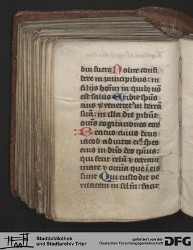 diu fuero Nolite confi
dere in principibus in
filijs hominū in quibꝰ nō
est salus Exibit spūs
eius ⁊ reuertet᷑ in terrā
suā in illa die peribūt
oēs cogitaciones eorū
Beatus cuius deus
iacob adiutor eiꝰ spes
eius in dño deo ipsius
qui fecit celū ⁊ terram
mare ⁊ omnia que ī eis
sunt Qui custodit ve
ritatem in sclm facit
Stadtbibliothek
und Stadtarchiv Trier
gefördert von der
Deutschen Forschungsgemeinschaft
DFG